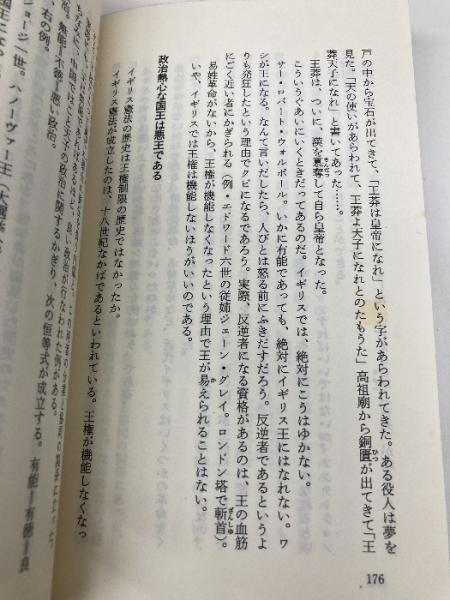 戸の中から宝石が出てきて、「王莽は皇帝になれ」という字があらわれてきた。ある役人は夢を
見た。「天の使いがあらわれて、王莽よ天子になれとのたもうた」高祖廟から銅匱が出てきて「王
莽天子になれ」と書いてあった……。
王莽は、ついに、漢を簒奪して自ら皇帝となった。
こういうぐあいにいくときだってあるのだ。イギリスでは、絶対にこうはゆかない。
サー・ロバート・ウォルポール。いかに有能であっても、絶対にイギリス王にはなれない。ワ
シが王になる。なんて言いだしたら、人びとは怒る前にふきだすだろう。反逆者であるというよ
りも発狂したという理由でクビになるであろう。実際、反逆者になる資格があるのは、王の血筋
にごく近い者にかぎられる(例・エドワード六世の従姉ジェーン・グレイ。ロンドン塔で斬首)。
易姓革命がないから、王権が機能しなくなったという理由で王が易えられることはない。
いや、イギリスでは王権は機能しないほうがいいのである。
政治熱心な国王は悪王である
イギリス憲法の歴史は王権制限の歴史ではなかったか。
イギリス憲法が成立したのは、十八世紀なかばであるといわれている。王権が機能しなくなっ
176
良い政治が行なわれた例がある。
中国では、天子の政治に関するかぎり、次の恒等式が成立する。有能=有徳=良
無能=不徳=悪い政治。
右の例。
ジョージ一世。ハノーヴァー王